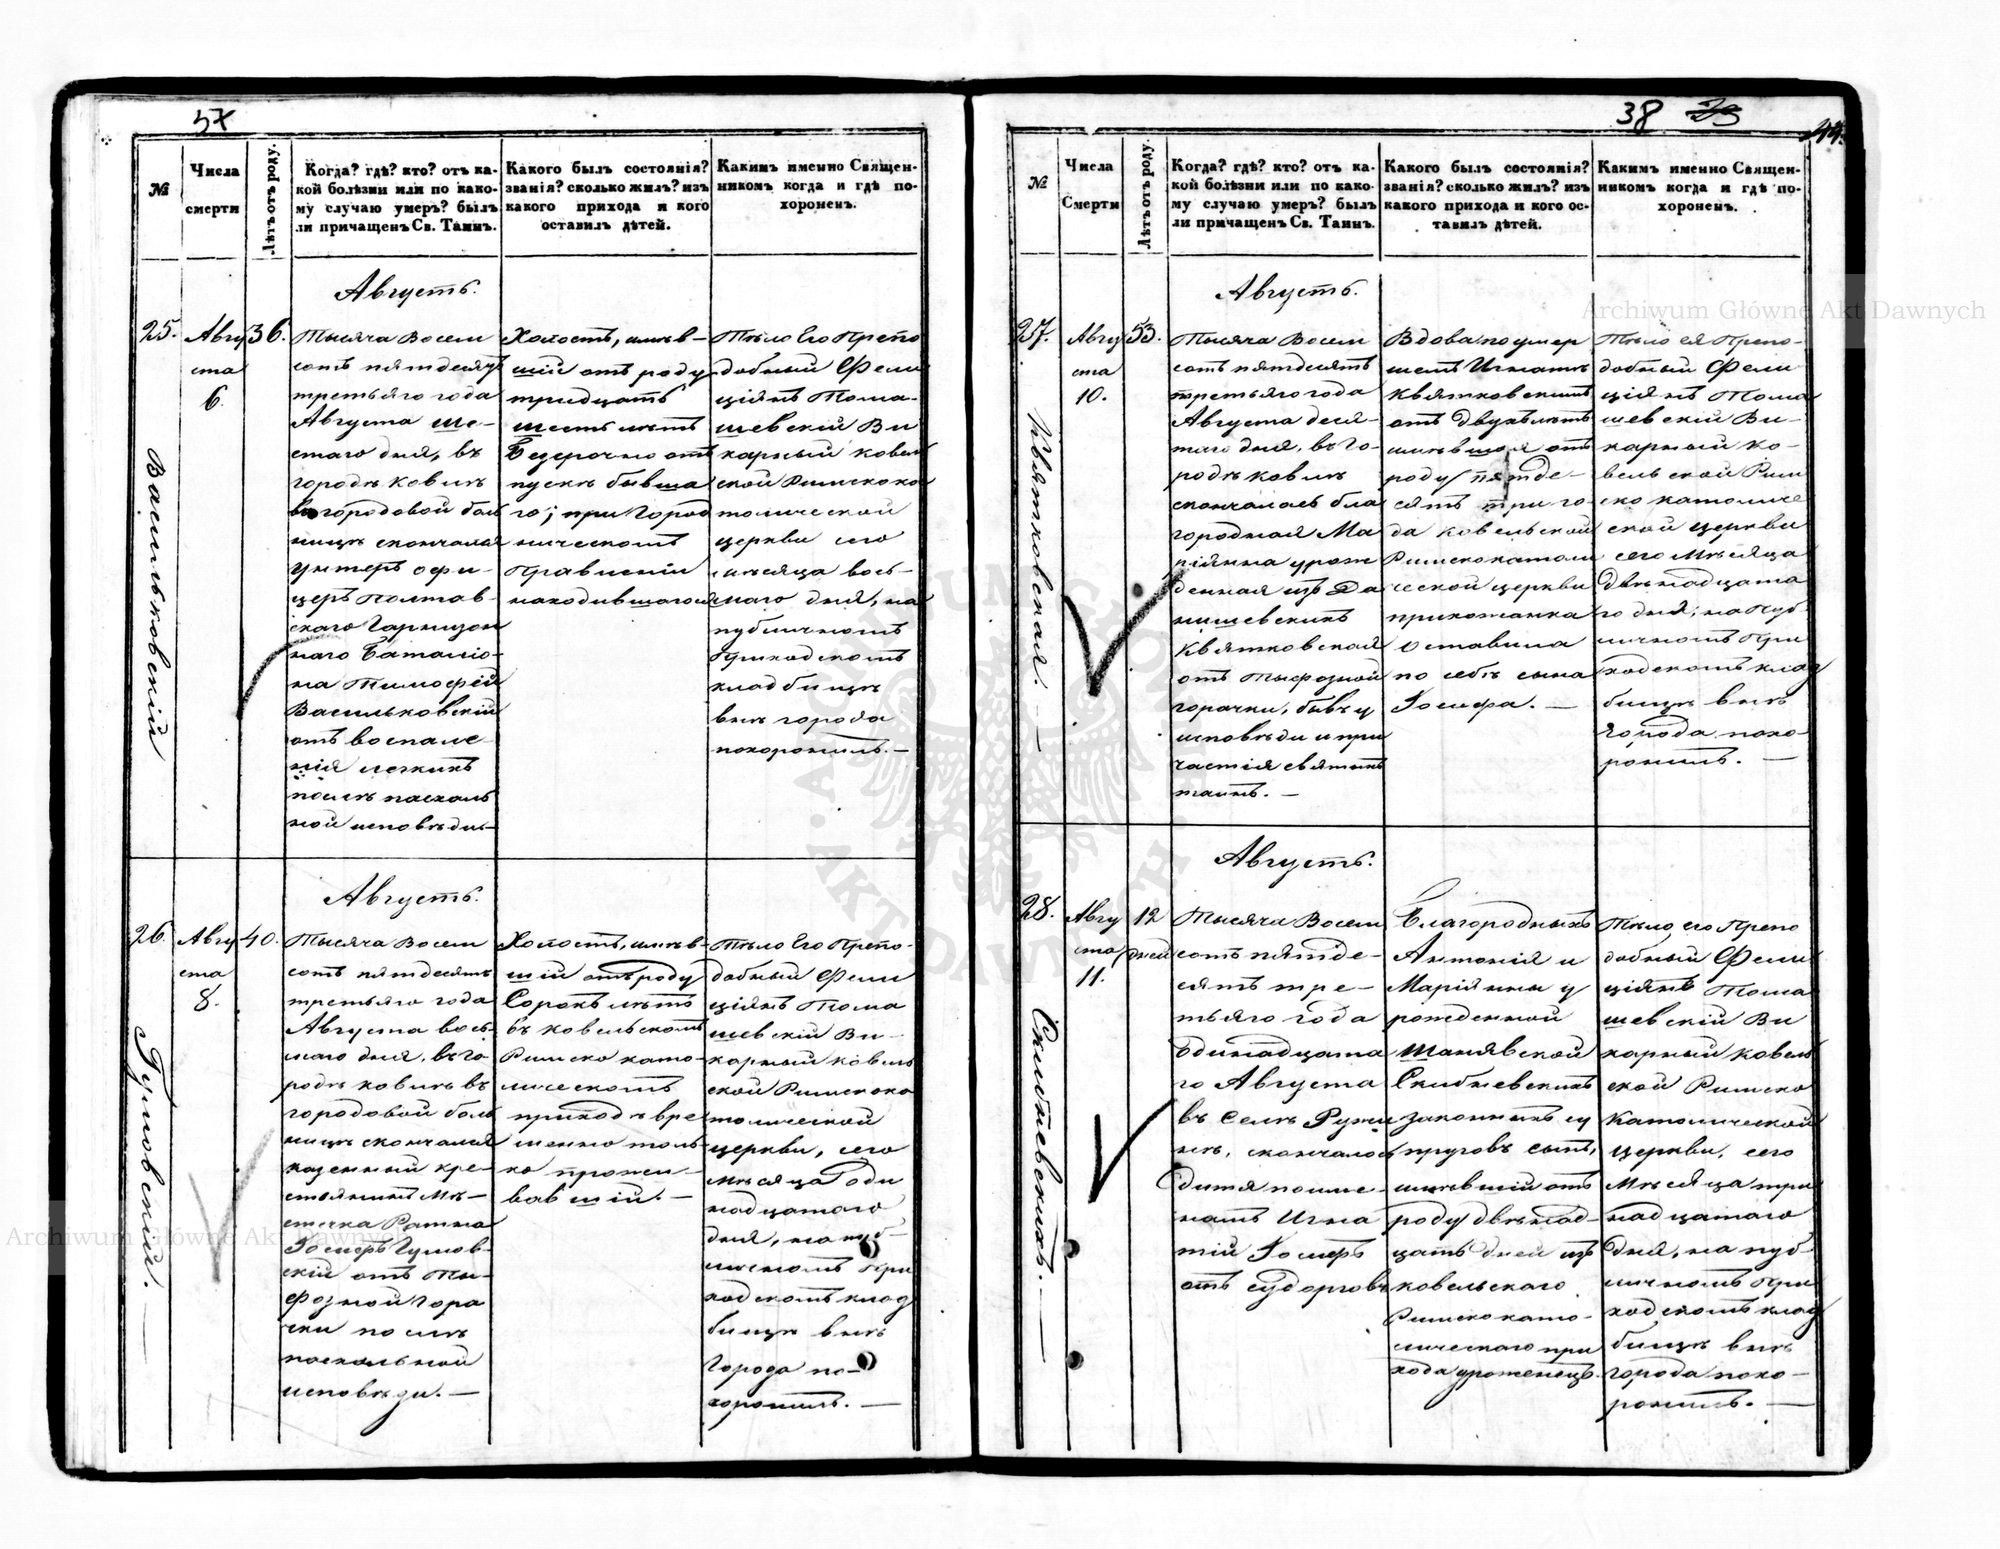 37
№
Числа
смерти
Лѣтъ отъ роду.
Когда? гдѣ? кто? отъ ка-
кой болѣзни или по како-
му случаю умеръ? былъ
ли причащенъ Св. Таинъ.
Какого былъ состоянія?
званія? сколько жилъ? изъ
какого прихода и кого
оставилъ дѣтей.
Какимъ именно Священ-
никомъ когда и гдѣ по-
хороненъ.
25.
Авгу
ста
6.
36.
Васильковскій
Августъ.
Тысяча Восем
сотъ пятдесят
третьяго года
Августа ше-
стаго дня, въ
городѣ Ковлѣ
въ городовой боль
ницѣ скончался
Унтеръ офи-
церъ Полтав-
скаго Гарнизон
наго Баталіо-
на Тимофей
Васильковскій
отъ воспале-
нія легкихъ
послѣ пасхаль
ной исповѣди.
Холостъ, имѣв-
шій отъ роду
тридцать
шесть лѣтъ
Безсрочно от
пускѣ бывша
го; при Город
ническомъ
Правленіи
находившагося
Тѣло Его Препо
добный Фели
ціянъ Тома-
шевскій Ви
карный Ковел
ской Римскока
толической
церкви сего
мѣсяца вось-
маго дня, на
публичномъ
приходскомъ
кладбищѣ
внѣ города
похоронилъ.—
26.
Авгу
ста
8.
40.
Гумовскій.—
Августъ.
Тысяча Восем
сотъ пятдесятъ
третьяго года
Августа вось-
маго дня, въ го
родѣ Ковлѣ въ
городовой боль
ницѣ скончался
казенный кре-
стьянинъ Мѣ-
стечка Ратна
Іосифъ Гумов-
скій отъ ти-
фозной горя
чки послѣ
пасхальной
исповѣди.—
Холостъ, имѣв-
шій отъ роду
Сорокъ лѣтъ
въ Ковельскомъ
Римско като-
лическомъ
приходѣ вре
менно толь
ко прожи-
вавшій.—
Тѣло Его Препо-
добный Фели
ціянъ Тома
шевскій Ви-
карный Ковель
ской Римскока
толической
церкви, сего
мѣсяца оди
надцатаго
дня, на пуб-
личномъ при
ходскомъ клад
бищѣ внѣ
города по-
хоронилъ.—
38
44.
№
Числа
Смерти
Лѣтъ отъ роду.
Когда? гдѣ? кто? отъ ка-
кой болѣзни или по како-
му случаю умеръ? былъ
ли причащенъ Св. Таинъ.
Какого былъ состоянія?
званія? сколько жилъ? изъ
какого прихода и кого ос-
тавилъ дѣтей.
Какимъ именно Священ-
никомъ когда и гдѣ по-
хороненъ.
27.
Авгу
ста
10.
53.
Квятковская.—
Августъ.
Тысяча Восем
сотъ пятдесятъ
третьяго года
Августа деся-
таго дня, въ го-
родѣ Ковлѣ
скончалась бла
городная Ма
ріянна урож
денная изъ Да
нишевскихъ
Квятковская
отъ тифозной
горячки, бывъ у
исповѣди и при
частія святыхъ
таинъ.—
Вдова по умер
шемъ Игнатѣ
Квятковскимъ
отъ двухъ лѣтъ
имѣвшая отъ
роду пятде-
сятъ три го-
да Ковельской
Римскокатоли
ческой церкви
прихожанка
Оставила
по себѣ сына
Іосифа.—
Тѣло ея Препо-
добный Фели
ціянъ Тома
шевскій Ви-
карный Ко-
вельской Рим
ско католиче
ской церкви
сего Мѣсяца
двѣнадцата
го дня, на пуб-
личномъ при
ходскомъ клад
бищѣ внѣ
города похо-
ронилъ.—
28.
Авгу
ста
11.
12
дней
Скибневскихъ.—
Августъ.
Тысяча Восем
сотъ пятде-
сятъ тре-
тьяго года
Одинадцата
го Августа
въ Селѣ Ружи
нѣ, скончалось
дитя поиме-
намъ Игна
тій Іосифъ
отъ судорговъ
Благородныхъ
Антонія и
Маріянны у
рожденной
Шанявской
Скибневскихъ
законныхъ су
пруговъ сынъ,
имѣвшій отъ
роду двѣнад-
цать дней изъ
Ковельскаго
Римскокато-
лическаго при
хода уроженецъ.
Тѣло его Препо
добный Фели
ціянъ Тома
шевскій Ви
карный Ковель
ской Римско
Католической
Церкви, сего
Мѣсяца три
надцатаго
дня, на пуб-
личномъ при
ходскомъ клад
бищѣ внѣ
города похо-
ронилъ.—
Archiwum Główne Akt Dawnych
Archiwum Główne Akt Dawnych
ARCHIWUM GŁÓWNE AKT DAWNYCH